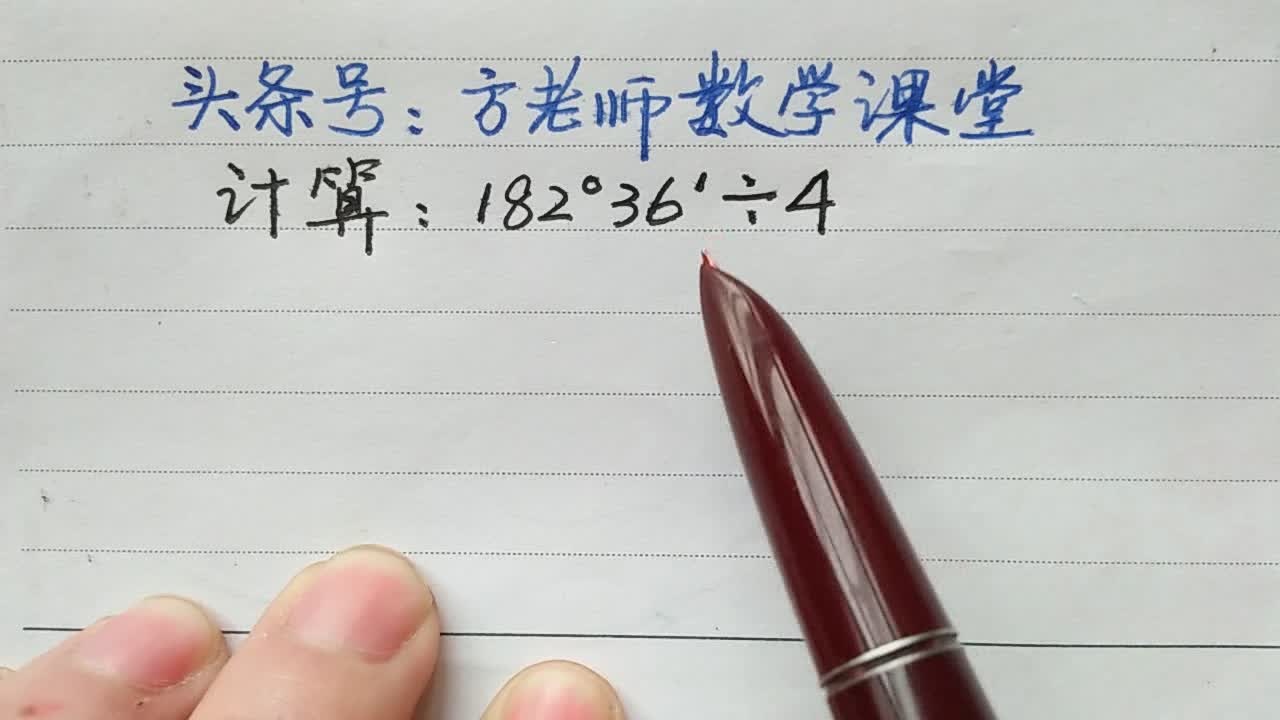 头条号：方老师数学课堂
计算：182°36′÷4